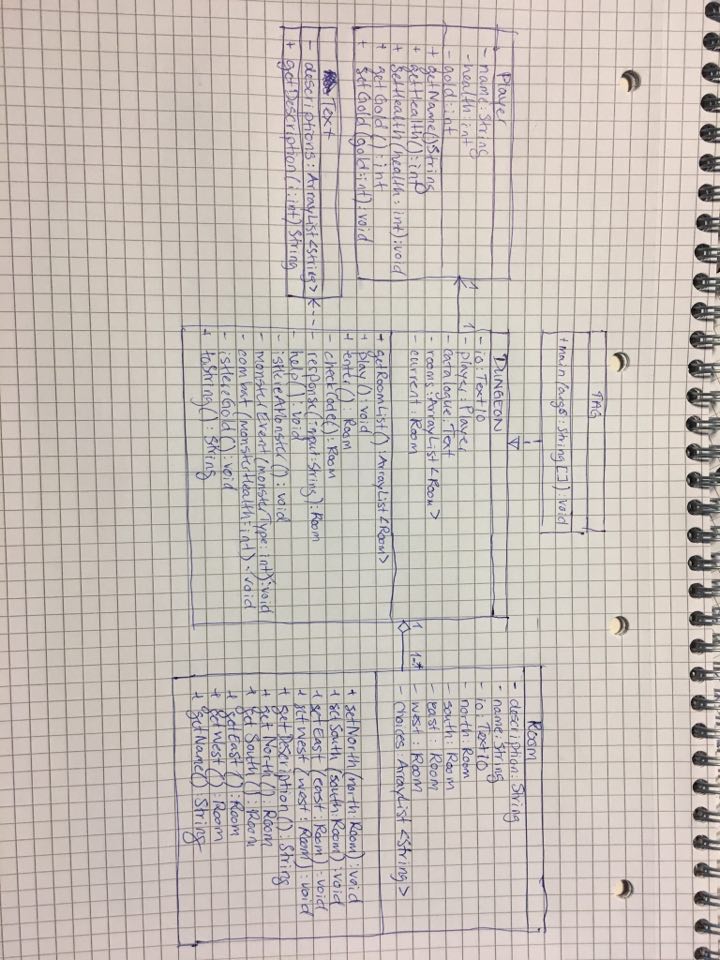 TAG
+ main(args: String[]): void
Player
- name: String
- health: int
- gold: int
+ getName() String
+ getHealth(): int
+ setHealth(health: int): void
+ getGold(): int
+ setGold(gold: int): void
Text
- descriptions: ArrayList<String>
+ getDescription(i: int) String
1
1
DUNGEON
- io: TextIO
- player: Player
- catalogue: Text
- rooms: ArrayList<Room>
- current: Room
+ getRoomList(): ArrayList<Room>
+ play(): void
+ enter(): Room
- checkCode(): Room
- response(input: String): Room
- help(): void
- isHereAMonster(): void
- monsterEvent(monsterType: int): void
- combat(monsterHealth: int): void
- isHereGold(): void
+ toString(): String
1
1..*
ROOM
- description: String
- name: String
- io: TextIO
- north: Room
- south: Room
- east: Room
- west: Room
- choices: ArrayList<String>
+ setNorth(north: Room): void
+ setSouth(south: Room): void
+ setEast(east: Room): void
+ setWest(west: Room): void
+ getDescription(): String
+ getNorth(): Room
+ getSouth(): Room
+ getEast(): Room
+ getWest(): Room
+ getName(): String